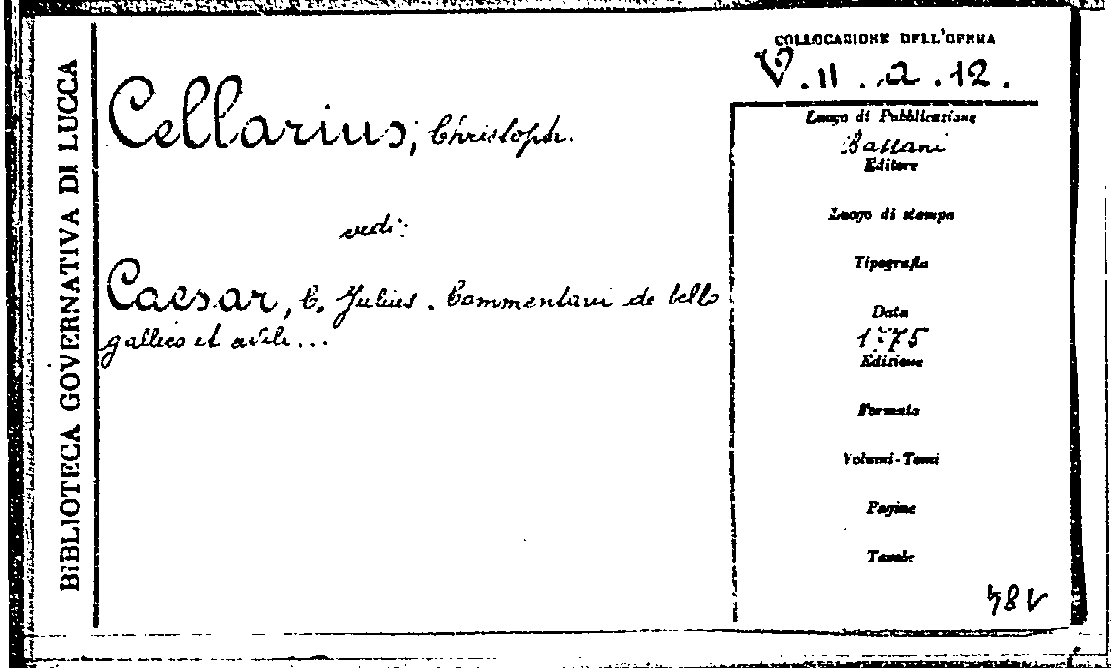 BIBLIOTECA GOVERNATIVA DI LUCCA
Cellarius, Christoph.
vedi:
Caesar, C. Julius. Commentarii de bello
gallico et civili...
COLLOCAZIONE DELL'OPERA
V. II. a. 12.
Luogo di Pubblicazione
Bassani
Editore
Luogo di stampa
Tipografia
Data
1775
Edizione
Formato
Volumi-Tomi
Pagine
Tavole